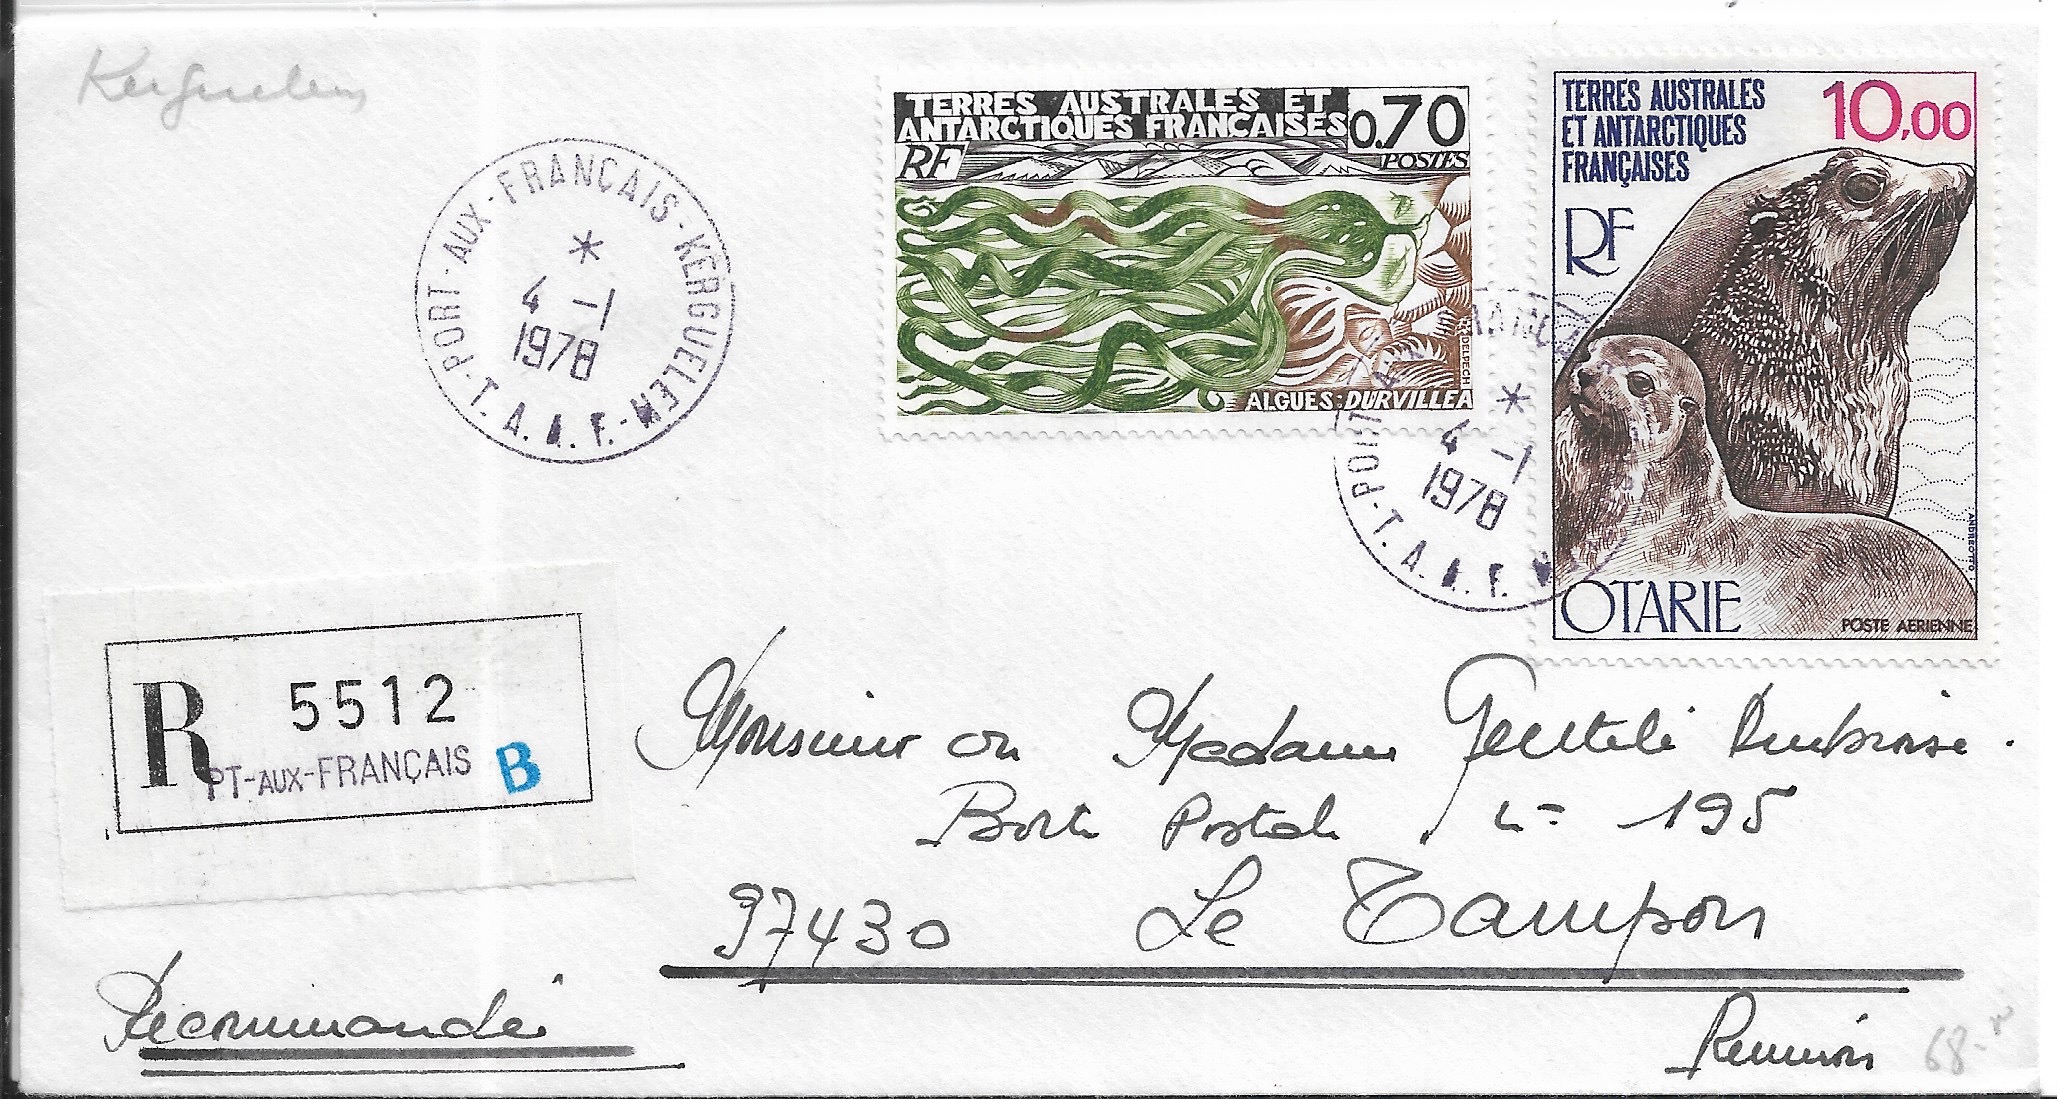 Kerguelen
PORT-AUX-FRANÇAIS-KERGUELEN
*
4 -1
1978
-T.A.A.F.-
TERRES AUSTRALES ET
ANTARCTIQUES FRANÇAISES
0.70
RF
POSTES
DELPECH
ALGUES: DURVILLEA
TERRES AUSTRALES
ET ANTARCTIQUES
FRANÇAISES
10,00
RF
ANDREOTTO
OTARIE
POSTE AERIENNE
PORT
*
4 -1
1978
-T.A.A.F.
R 5512
PT-AUX-FRANÇAIS B
Monsieur ou Madame Gentili Ambroise.
Boite Postale n= 195
97430 Le Tampon
Recommandé
Reunion
68.-